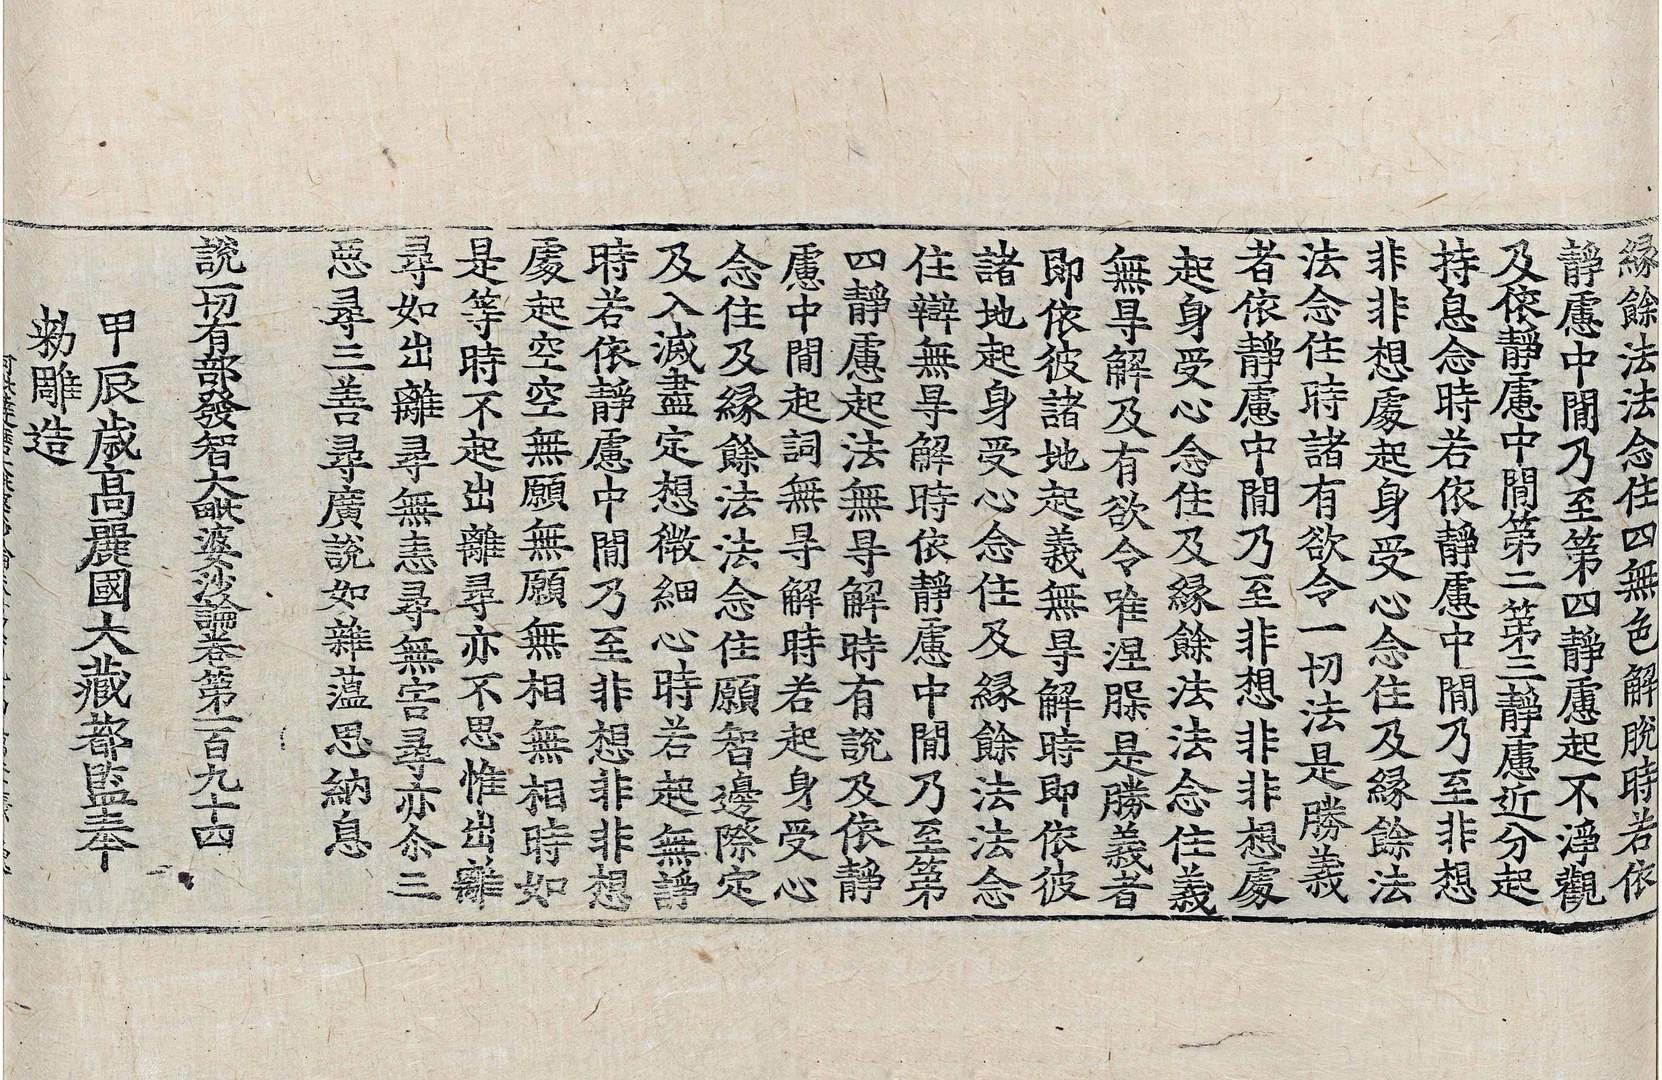 縁餘法法念住四無色解脫時若依
靜慮中閒乃至第四靜慮起不淨觀
及依靜慮中閒第二第三靜慮近分起
持息念時若依靜慮中閒乃至非想
非非想處起身受心念住及縁餘法
法念住時諸有欲令一切法是勝義
者依靜慮中閒乃至非想非非想處
起身受心念住及縁餘法法念住義
無㝵解及有欲令唯涅槃是勝義者
即依彼諸地起義無㝵解時即依彼
諸地起身受心念住及縁餘法法念
住辯無㝵解時依靜慮中閒乃至第
四靜慮起法無㝵解時有說及依靜
慮中閒起詞無㝵解時若起身受心
念住及縁餘法法念住願智邊際定
及入滅盡定想微細心時若起無諍
時若依靜慮中閒乃至非想非非想
處起空空無願無願無相無相時如
是等時不起出離尋亦不思惟出離
尋如出離尋無恚尋無害尋亦尒三
惡尋三善尋廣說如雜藴思納息
說一切有部發智大毗婆沙論卷第一百九十四
甲辰歲高麗國大藏都監奉
勅雕造